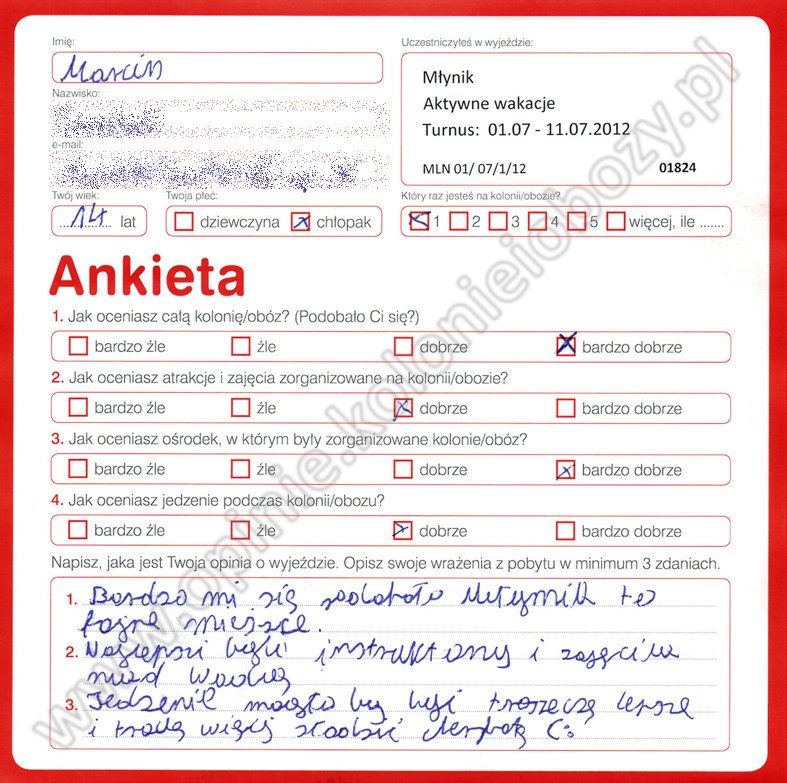 Imię:
Marcin
Uczestniczyłeś w wyjeździe:
Młynik
Aktywne wakacje
Turnus: 01.07 - 11.07.2012
MLN 01/ 07/1/12 01824
Nazwisko:
e-mail:
Twój wiek:
14 lat
Twoja płeć:
dziewczyna chłopak
Który raz jesteś na kolonii/obozie?
1 2 3 4 5 więcej, ile .......
Ankieta
1. Jak oceniasz całą kolonię/obóz? (Podobało Ci się?)
bardzo źle źle dobrze bardzo dobrze
2. Jak oceniasz atrakcje i zajęcia zorganizowane na kolonii/obozie?
bardzo źle źle dobrze bardzo dobrze
3. Jak oceniasz ośrodek, w którym były zorganizowane kolonie/obóz?
bardzo źle źle dobrze bardzo dobrze
4. Jak oceniasz jedzenie podczas kolonii/obozu?
bardzo źle źle dobrze bardzo dobrze
Napisz, jaka jest Twoja opinia o wyjeździe. Opisz swoje wrażenia z pobytu w minimum 3 zdaniach.
1. Bardzo mi się podobało to
fajne miejsce.
2. Najlepsi byli instruktorzy i zajęcia
nad wodą
3. Jedzenie mogło by być troszeczę lepsze
i trochę więcej słodzić C:
www.opinie.kolonieiobozy.pl